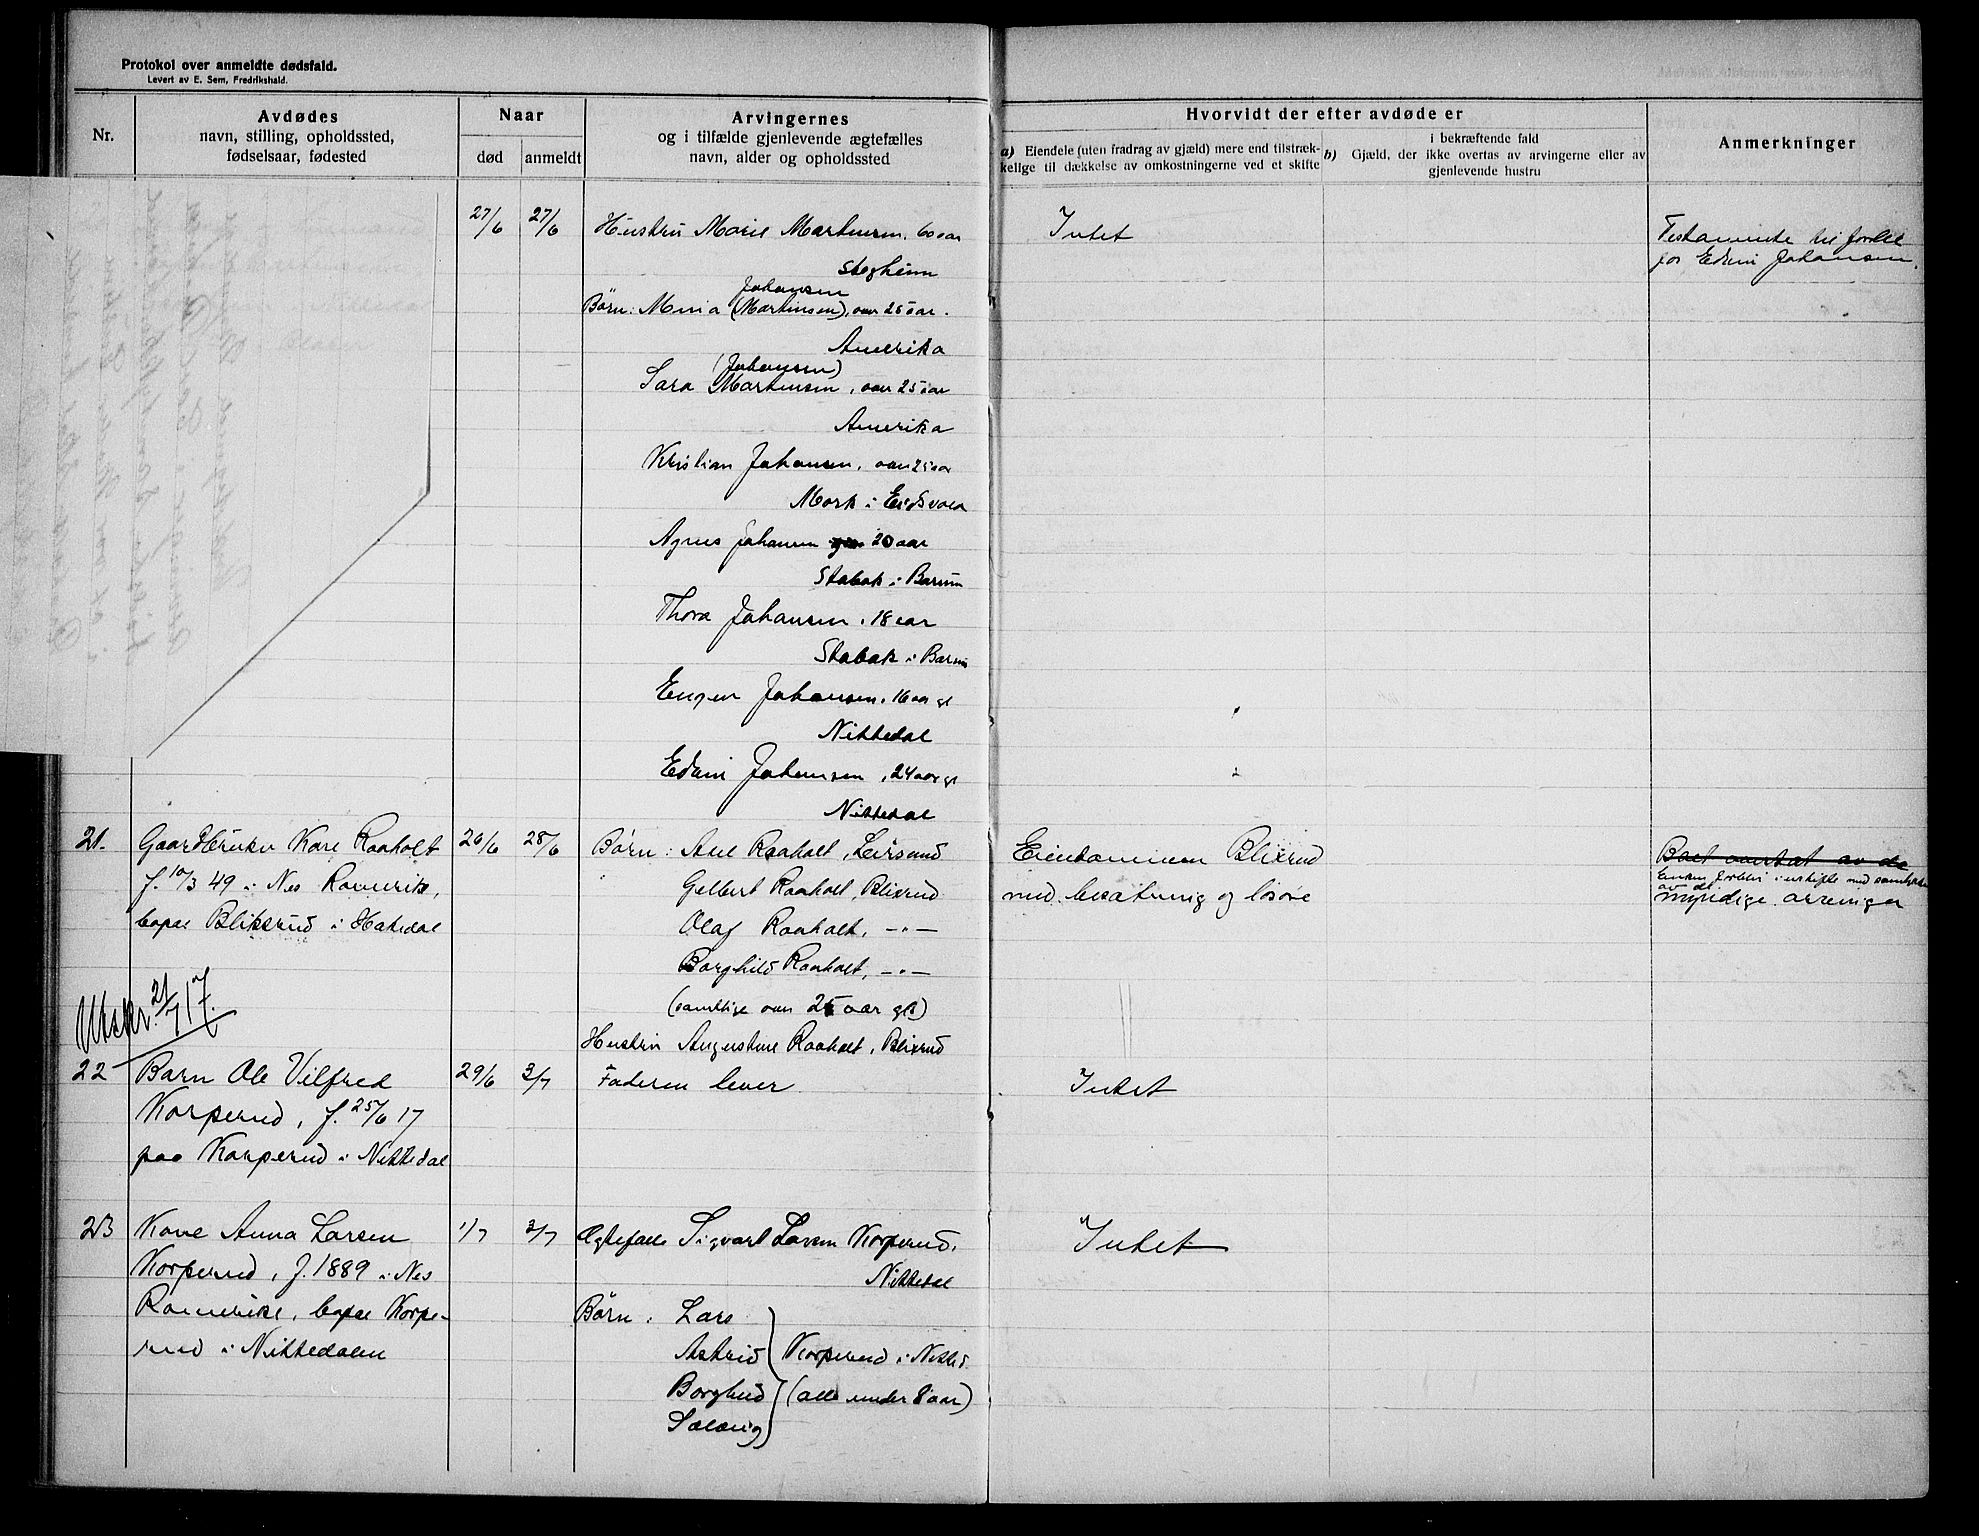 Protokol over anmeldte dødsfald.
Levert av E. Sem, Fredrikshald.
Nr.
Avdødes
navn, stilling, opholdssted,
fødselsaar, fødested
Naar
død
anmeldt
Arvingernes
og i tilfælde gjenlevende ægtefælles
navn, alder og opholdssted
Hvorvidt der efter avdøde er
a) Eiendele (uten fradrag av gjæld) mere end tilstræk-
kelige til dækkelse av omkostningerne ved et skifte
i bekræftende fald
b) Gjæld, der ikke overtas av arvingerne eller av
gjenlevende hustru
Anmerkninger
27/6 27/6 Hustru Marie Martinsen, 60 aar
Intet
Testamente til fordel
for Edvin Johansen.
Johansen
Børn: Maria (Martinsen), over 25 aar.
Amerika
(Johansen)
Sara Martinsen, over 25 aar
Amerika
Kristian Johansen, over 25 aar
Mork i Eidsvold
Agnes Johansen 20 aar
Stabæk i Bærum
Thora Johansen, 18 aar
Stabæk i Bærum
Eugen Johansen, 16 aar gl
Nittedal
Edvin Johansen, 24 aar gl
Nittedal
21. Gaardbruker Kare Raaholt 26/6 28/6 Børn: Ane Raaholt, Leirsund
f. 10/3 49 i Nes Romerike, Gelbert Raaholt, Blixrud
bopæl Bliksrud i Hakedal Olaf Raaholt, —"—
Borghild Raaholt, —"—
(samtlige over 25 aar gl)
Hustru Augustine Raaholt, Blixrud
Eiendommen Blixrud
med besætning og løsøre
Boet overtat av de
Enken forblir i uskifte med samtykke
av de
myndige arvinger
Utskr. 21/7 17.
22 Barn Ole Vilfred 29/6 3/7 Faderen lever Intet
Korperud, f. 25/6 17
paa Korperud i Nittedal
23 Kone Anna Larsen 1/7 3/7 Ægtefælle Sigvart Larsen Korperud, Intet
Korperud, f. 1889 i Nes Nittedal
Romerike, bopæl Korpe-
rud i Nittedalen
Børn: Lars
Astrid Korperud i Nitted.
Borghild (alle under 8 aar)
Solveig